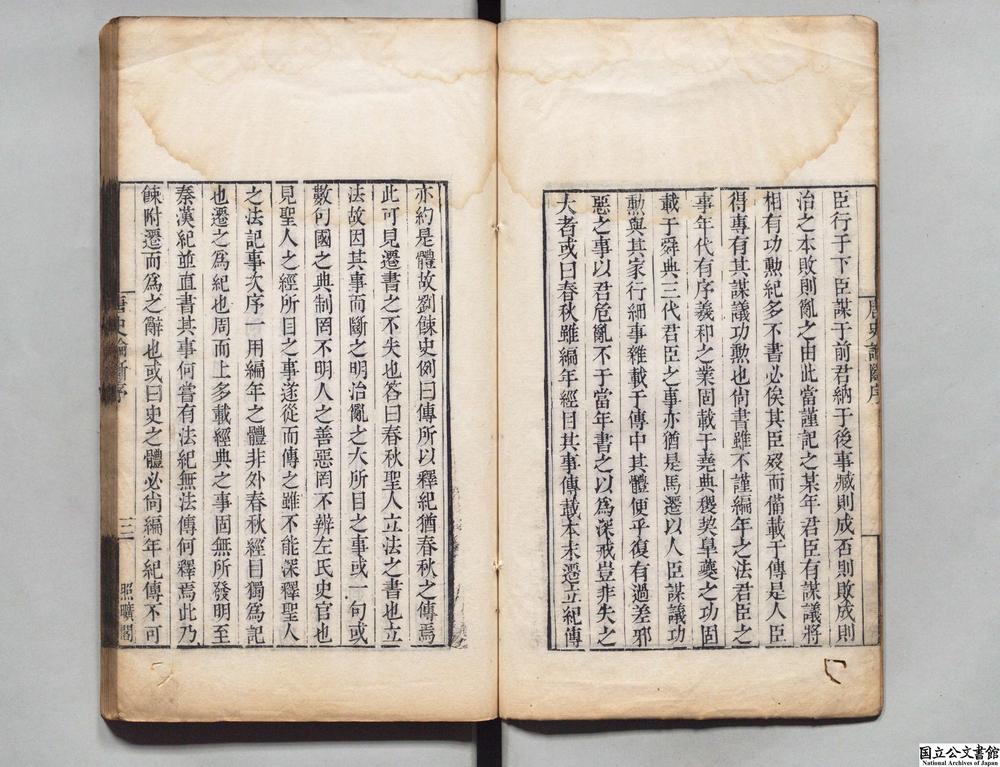 唐史論斷序
臣行于下臣謀于前君納于後事臧則成否則敗成則
治之本敗則亂之由此當謹記之某年君臣有謀議將
相有功勲紀多不書必俟其臣歿而備載于傳是人臣
得專有其謀議功勲也尚書雖不謹編年之法君臣之
事年代有序義和之業固載于堯典稷契皐夔之功固
載于舜典三代君臣之事亦猶是馬遷以人臣謀議功
勲與其家行細事雜載于傳中其體便乎復有過差邪
惡之事以召危亂不于當年書之以爲深戒豈非失之
大者或曰春秋雖編年經目其事傳載本末遷立紀傳
亦約是體故劉餗史例曰傳所以釋紀猶春秋之傳焉
此可見遷書之不失也答曰春秋聖人立法之書也立
法故因其事而斷之明治亂之大所目之事或一句或
數句國之典制罔不明人之善惡罔不辨左氏史官也
見聖人之經所目之事遂從而傳之雖不能深釋聖人
之法記事次序一用編年之體非外春秋經目獨爲記
也遷之爲紀也周而上多載經典之事固無所發明至
秦漢紀並直書其事何嘗有法紀無法傳何釋焉此乃
餗附遷而爲之辭也或曰史之體必尚編年紀傳不可
唐史論斷序
三
照曠閣
国立公文書館
National Archives of Japan